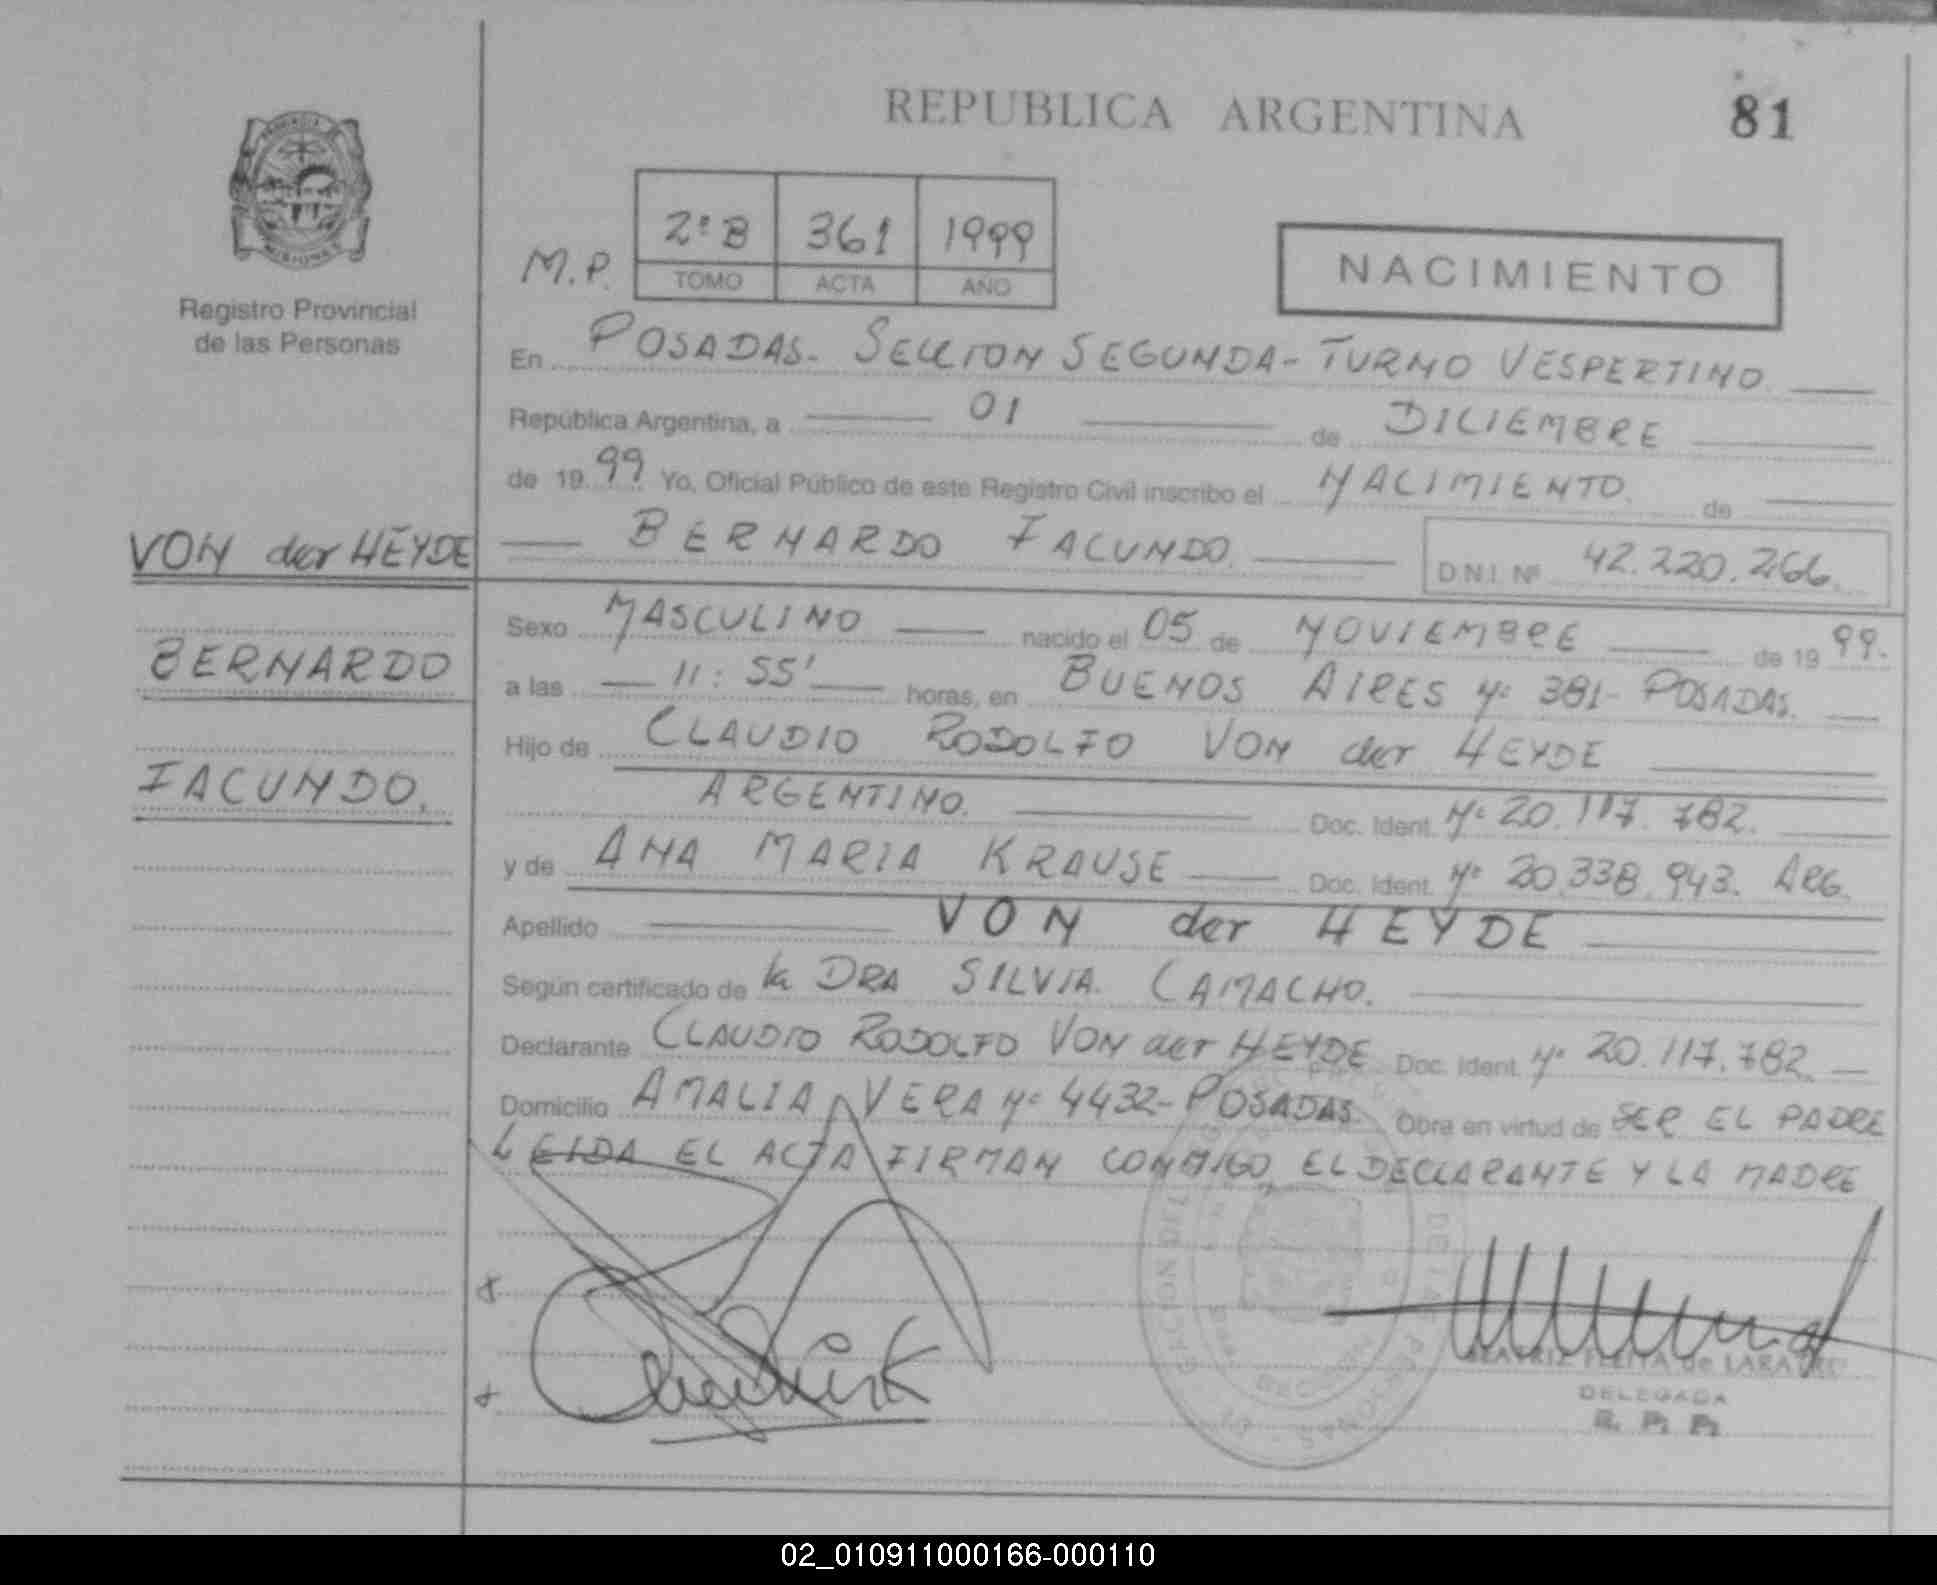 REPUBLICA ARGENTINA
81
Registro Provincial
de las Personas
M.P.
2ª B 361 1999
TOMO ACTA AÑO
NACIMIENTO
En POSADAS - SECCION SEGUNDA - TURNO VESPERTINO
República Argentina, a 01 de DICIEMBRE
de 1999 Yo, Oficial Público de este Registro Civil inscribo el NACIMIENTO de
BERNARDO FACUNDO. D.N.I. Nº 42.220.266.
VON der HEYDE
BERNARDO
FACUNDO.
Sexo MASCULINO nacido el 05 de NOVIEMBRE de 1999.
a las 11:55' horas, en BUENOS AIRES Nº 381 - POSADAS.
Hijo de CLAUDIO RODOLFO VON der HEYDE
ARGENTINO. Doc. Ident. Nº 20.117.782.
y de ANA MARIA KRAUSE Doc. Ident. Nº 20.338.943. ARG.
Apellido VON der HEYDE
Según certificado de la DRA SILVIA CAMACHO.
Declarante CLAUDIO RODOLFO VON der HEYDE Doc. Ident. Nº 20.117.782
Domicilio AMALIA VERA Nº 4432 - POSADAS. Obra en virtud de SER EL PADRE
LEIDA EL ACTA FIRMAN CONMIGO, EL DECLARANTE Y LA MADRE
BEATRIZ de
DELEGADA
R. P. P.
02_010911000166-000110